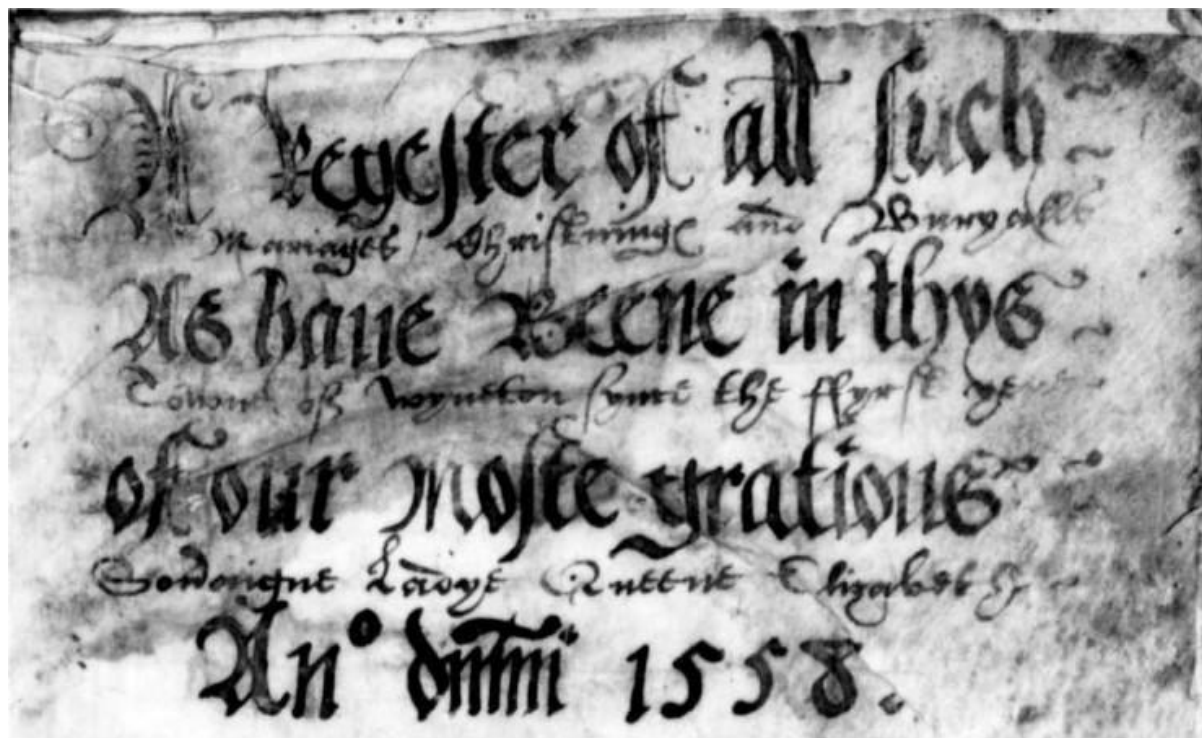 A Regester of all such
Mariages / Chrisknings and Buryalls
As haue Beene in thys
Towne of Wyneton synce the ffyrst yere
of our Moste gratious
Soveraigne Ladye Queene Elizabeth
An° dmni 1558.